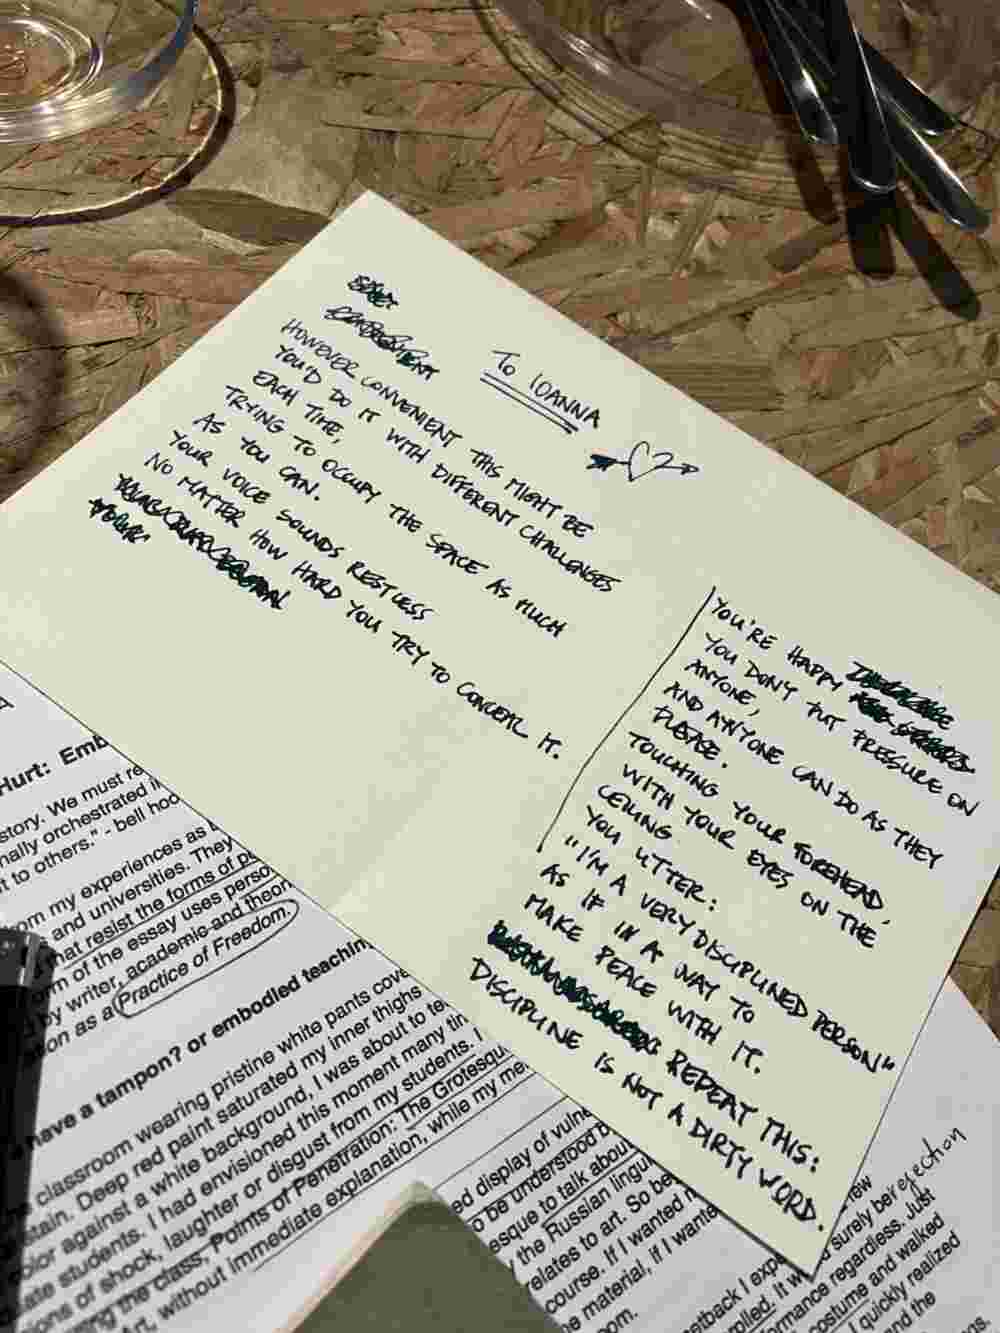 To IOANNA
HOWEVER CONVENIENT THIS MIGHT BE
YOU'D DO IT WITH DIFFERENT CHALLENGES
EACH TIME,
TRYING TO OCCUPY THE SPACE AS MUCH
AS YOU CAN.
YOUR VOICE SOUNDS RESTLESS
NO MATTER HOW HARD YOU TRY TO CONCEAL IT.
YOU'RE HAPPY
YOU DON'T PUT PRESSURE ON
ANYONE,
AND ANYONE CAN DO AS THEY
PLEASE.
TOUCHING YOUR FOREHEAD,
WITH YOUR EYES ON THE
CEILING
YOU UTTER:
"I'M A VERY DISCIPLINED PERSON"
AS IF IN A WAY TO
MAKE PEACE WITH IT.
REPEAT THIS:
DISCIPLINE IS NOT A DIRTY WORD.
Hurt: Emb
story. We must re
nally orchestrated i
t to others." - bell hoo
om my experiences as
and universities. They
that resist the forms of
rm of the essay uses perso
d by writer, academic and theor
tion as a Practice of Freedom.
have a tampon? or embodied teachin
classroom wearing pristine white pants cove
stain. Deep red paint saturated my inner thighs
color against a white background, I was about to te
ate students. I had envisioned this moment many tim
ions of shock, laughter or disgust from my students. I
ing the class, Points of Penetration: The Grotesqu
Art, without immediate explanation, while my me
ed display of vulne
o be understood b
esque to talk about
the Russian lingui
relates to art. So be
course. If I wanted
he material, if I wante
oom.
ew
surely be rejection
etback I expe
rolled. It w
rmance regardless. Just
costume and walked
I quickly realized
and the